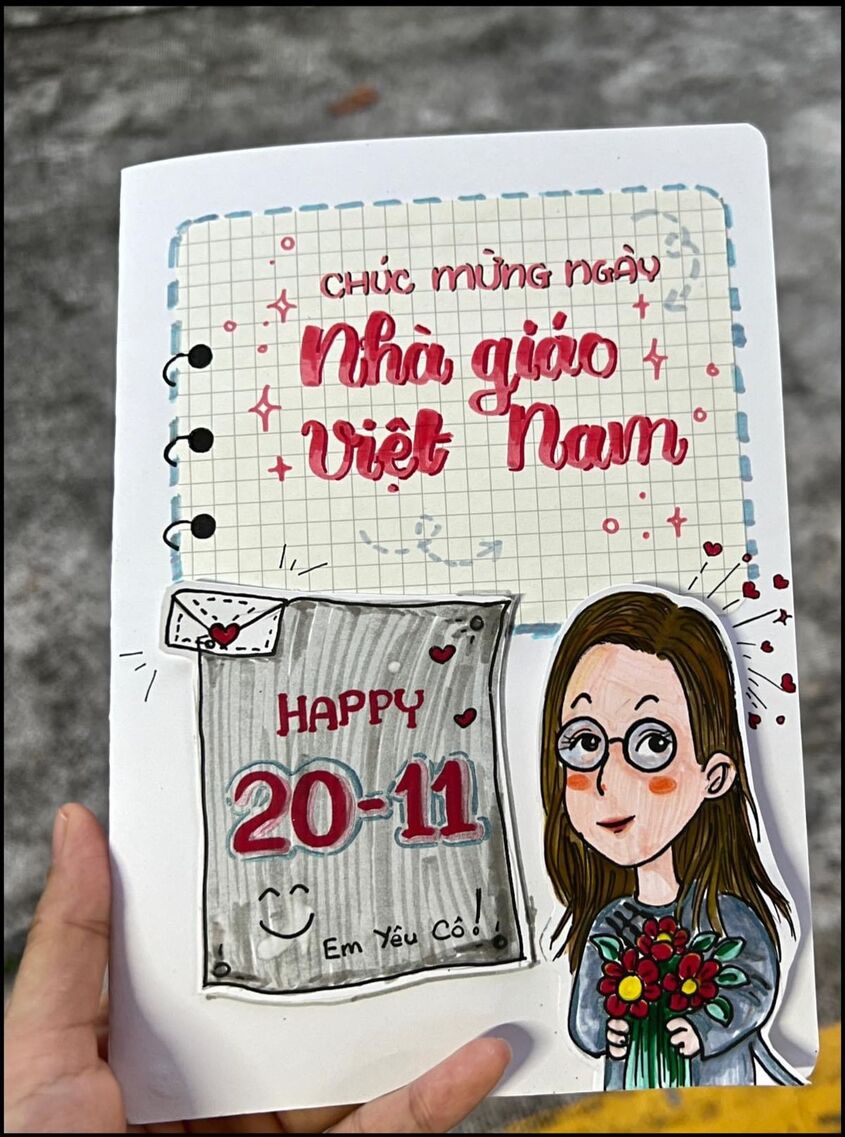 CHÚC MỪNG NGÀY
Nhà giáo
Việt Nam
HAPPY
20-11
Em Yêu Cô!